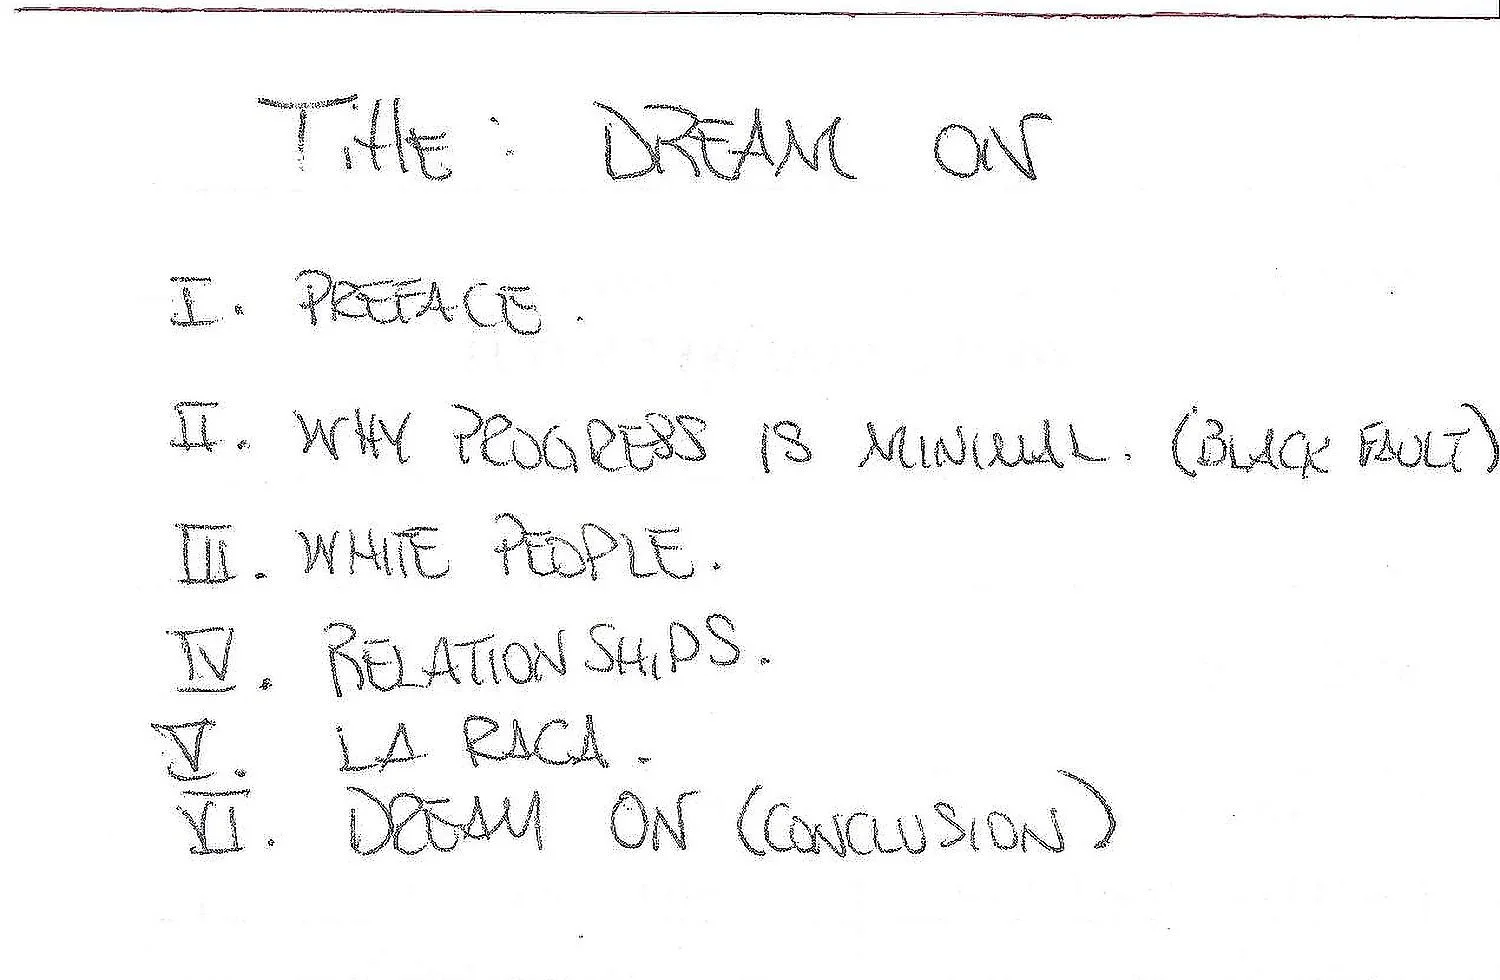 Title: DREAM ON
I. PREFACE.
II. WHY PROGRESS IS MINIMAL. (BLACK FAULT)
III. WHITE PEOPLE.
IV. RELATIONSHIPS.
V. LA RACA.
VI. DREAM ON (CONCLUSION)